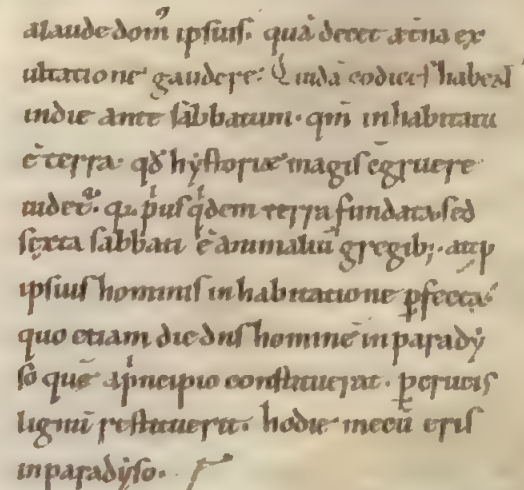 a laude dom᷑ ipsius. quā decet æt̄na ex
ultatione gaudere: Quidā codices haben̄t
in die ante sabbatum. qm̄ inhabitata
ē terra. qđ hystoriæ magis c̄gruere
uidet᷑. q̣a p̄us qⁱdem terra fundata. sed
sexta sabbati ē animaliū gregib;. atqꝫ
ipsius hominis inhabitatione ꝑfecta.
quo etiam die dn̄s hominē in parady
so quē a pⁱncipio constituerat. ꝑ crucis
lignū restituerit. hodie mecū eris
in paradyso.